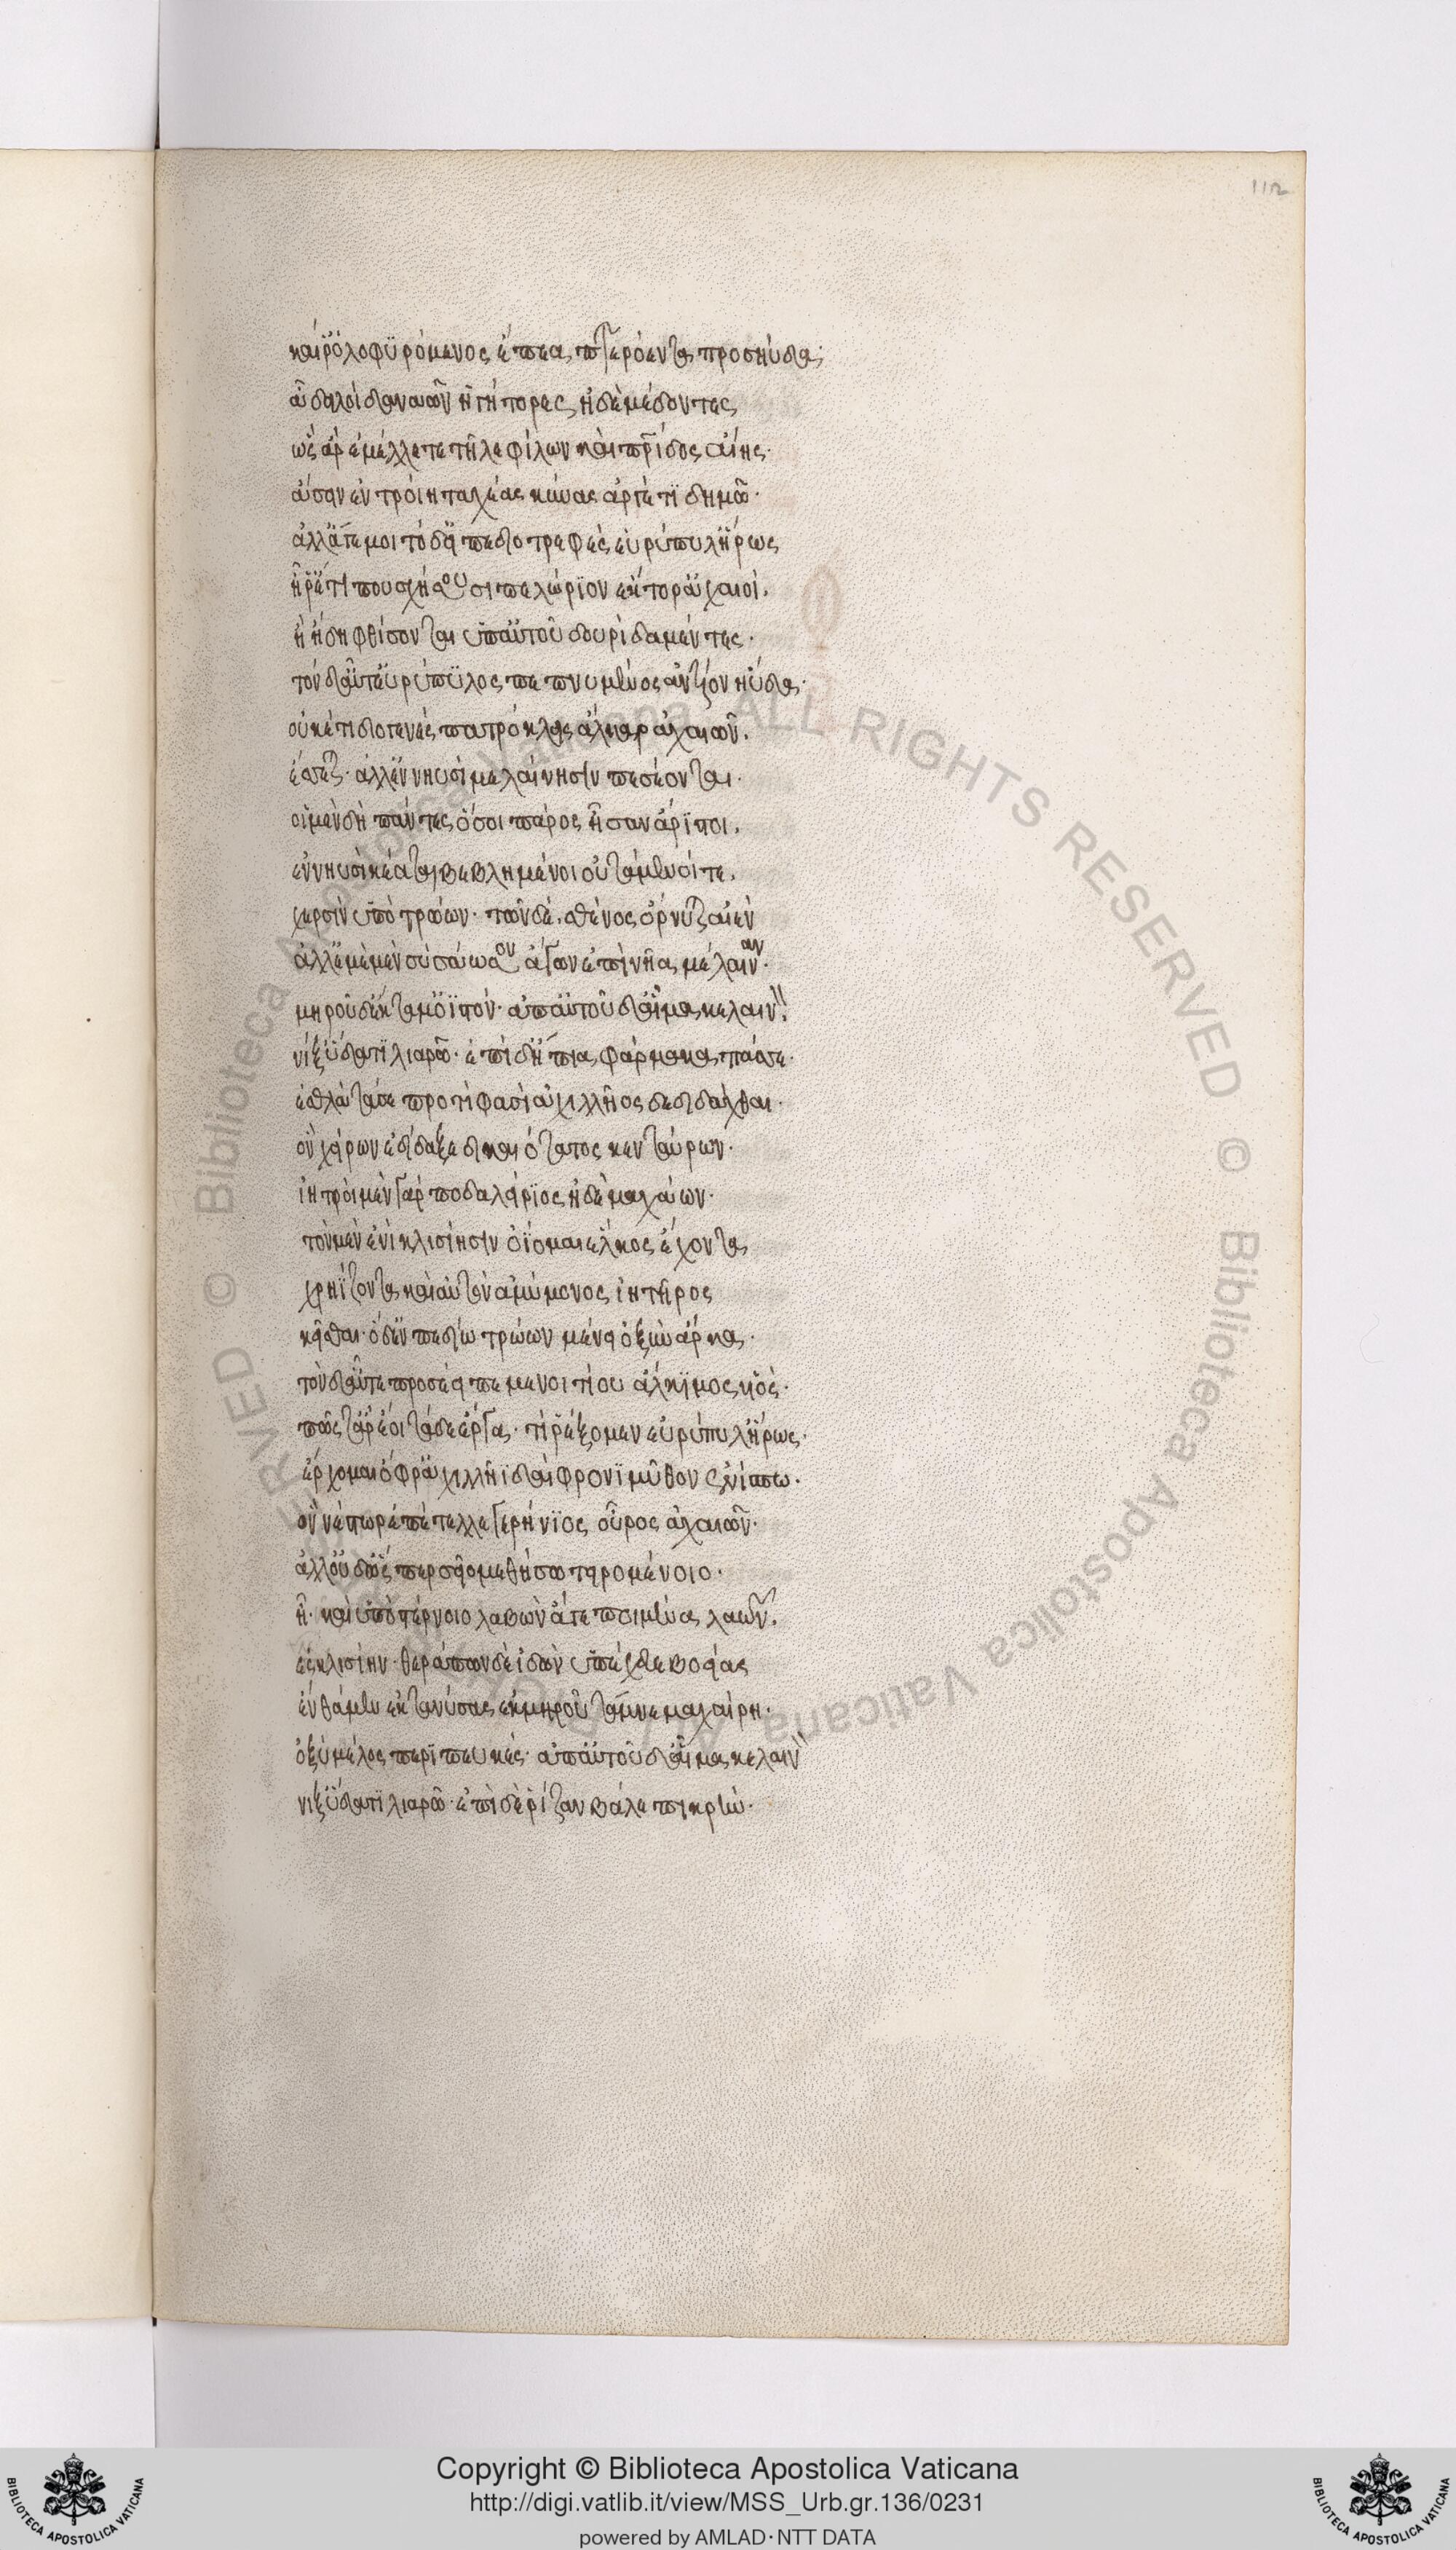 112
καί ῥ' ὀλοφυρόμενος ἔπεα πτερόεντα προσηύδα·
ἆ δειλοὶ δαναῶν ἡγήτορες ἠδὲ μέδοντες
ὣς ἄρ' ἐμέλλετε τῆλε φίλων καὶ πρίδος αἴης·
ἄσειν ἐν τροίη ταχέας κύνας ἀργέτι δημῶ·
ἀλλ' ἄγε μοι τόδε εἰπὲ διοτρεφὲς εὐρύπυλ' ἥρως
ἤ ῥ' ἔτι που σχήσουσι πελώριον ἕκτορ' ἀχαιοί.
ἢ ἤδη φθίσονται ὑπ' αὐτοῦ δουρὶ δαμέντες·
τὸν δ' αὖτ' εὐρύπυλος πεπνυμένος ἀντίον ηὔδα·
οὐκέτι διογενὲς πατρόκλεις ἄλκαρ ἀχαιῶν.
ἔσσεται· ἀλλ' ἐν νηυσὶ μελαίνησιν πεσέονται·
οἱ μὲν δὴ πάντες ὅσοι πάρος ἦσαν ἄριστοι.
ἐν νηυσὶ κέαται βεβλημένοι οὐτάμενοί τε.
χερσὶν ὑπὸ τρώων· τῶν δὲ σθένος ὄρνυται αἰέν
ἀλλ' ἐμὲ μὲν σὺ σάωσον ἄγων ἐπὶ νῆα μέλαιναν·
μηροῦ δ' ἔκταμ' ὀϊστόν· ἀπ' αὐτοῦ δ' αἷμα κελαιν.
νίζ' ὕδατι λιαρῶ· ἐπὶ δ' ἤπια φάρμακα πάσσε·
ἐσθλὰ τά σε προτί φασὶ ἀχιλλῆος δεδιδάχθαι·
ὃν χείρων ἐδίδαξε δικαιότατος κενταύρων·
ἰητροὶ μὲν γὰρ ποδαλείριος ἠδὲ μαχάων·
τὸν μὲν ἐνὶ κλισίησιν ὀΐομαι ἕλκος ἔχοντα
χρηΐζοντα καὶ αὐτὸν ἀμύμονος ἰητῆρος
κεῖσθαι· ὁ δ' ἐν πεδίω τρώων μένει ὀξὺν ἄρηα·
τὸν δ' αὖτε προσέειπε μενοιτίου ἄλκιμος υἱός·
πῶς τ' ἄρ' ἔοι τάδε ἔργα· τί ῥέξομεν εὐρύπυλ' ἥρως·
ἔρχομαι ὄφρ' ἀχιλλῆϊ δαΐφρονι μῦθον ἐνίσπω·
ὃν νέστωρ ἐπέτελλε γερήνιος οὖρος ἀχαιῶν·
ἀλλ' οὐδ' ὥς περ σεῖο μεθήσω τειρομένοιο·
ἦ· καὶ ὑπὸ στέρνοιο λαβὼν ἄγε ποιμένα λαῶν.
ἐς κλισίην· θεράπων δὲ ἰδὼν ὑπέχευε βοείας
ἔνθά μιν ἐκτανύσας ἐκ μηροῦ τάμνε μαχαίρη·
ὀξὺ βέλος περιπευκές· ἀπ' αὐτοῦ δ' αἷμα κελαιν
νίζ' ὕδατι λιαρῶ· ἐπὶ δὲ ῥίζαν βάλε πικρήν·
Copyright © Biblioteca Apostolica Vaticana
http://digi.vatlib.it/view/MSS_Urb.gr.136/0231
powered by AMLAD·NTT DATA